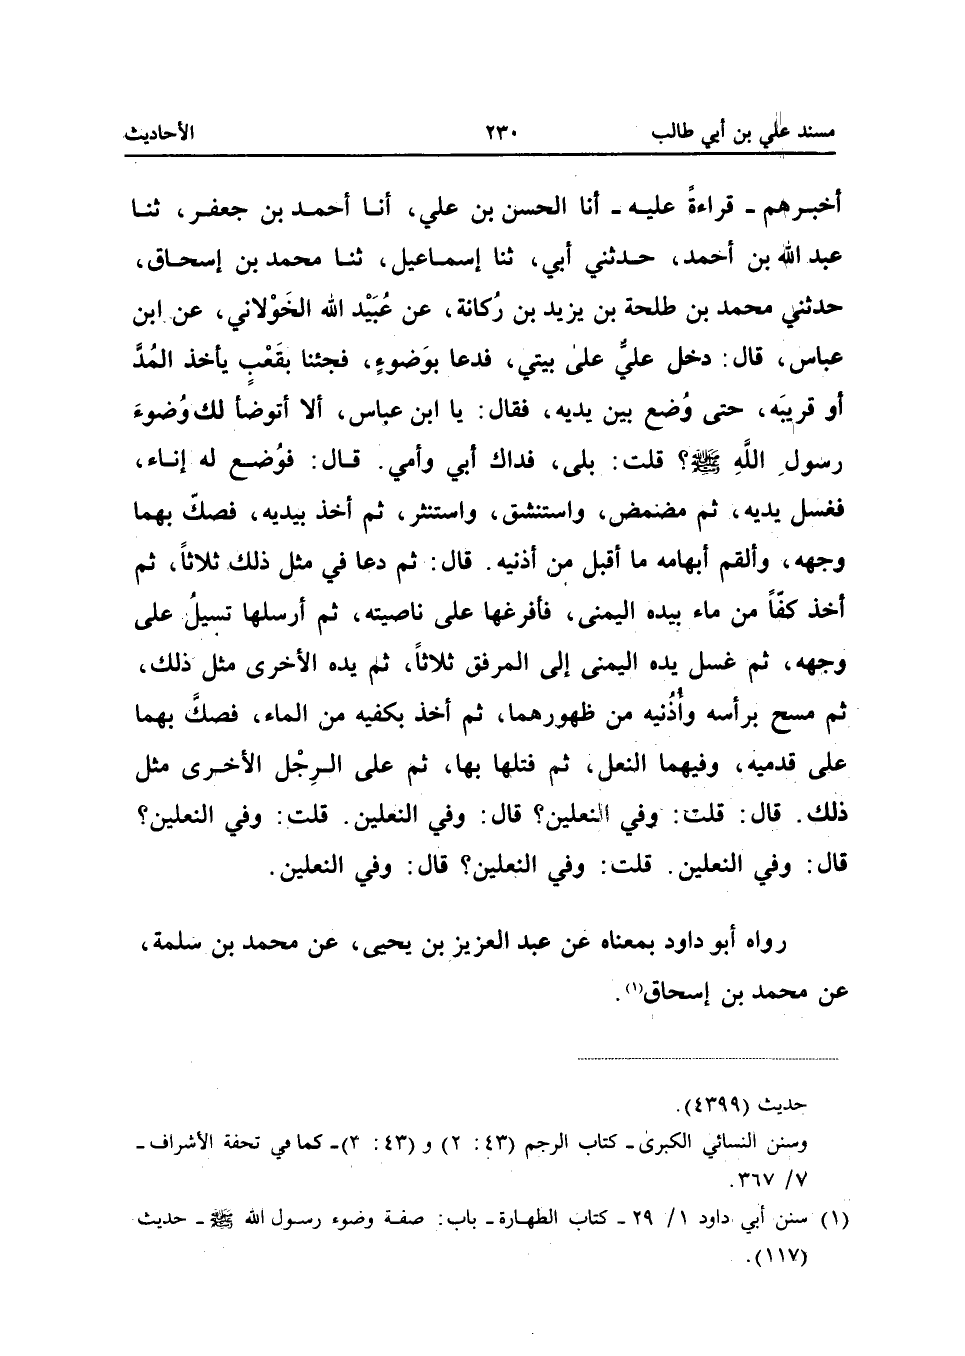 مسند علي بن أبي طالب ٢٣٠ الأحاديث
أخبرهم ـ قراءةً عليه ـ أنا الحسن بن علي، أنا أحمد بن جعفر، ثنا
عبد الله بن أحمد، حدثني أبي، ثنا إسماعيل، ثنا محمد بن إسحاق،
حدثني محمد بن طلحة بن يزيد بن رُكانة، عن عُبَيْد الله الخَوْلاني، عن ابن
عباس، قال: دخل عليٌّ علىٰ بيتي، فدعا بوَضوءٍ، فجئنا بقَعْبٍ يأخذ المُدَّ
أو قريبَه، حتى وُضع بين يديه، فقال: يا ابن عباس، ألا أتوضأ لك وُضوءَ
رسولِ اللَّهِ ﷺ؟ قلت: بلى، فداك أبي وأمي. قال: فوُضع له إناء،
فغسل يديه، ثم مضمض، واستنشق، واستنثر، ثم أخذ بيديه، فصكّ بهما
وجهه، وألقم أبهامه ما أقبل من أذنيه. قال: ثم دعا في مثل ذلك ثلاثاً، ثم
أخذ كفّاً من ماء بيده اليمنى، فأفرغها على ناصيته، ثم أرسلها تسيلُ على
وجهه، ثم غسل يده اليمنى إلى المرفق ثلاثاً، ثم يده الأخرى مثل ذلك،
ثم مسح برأسه وأُذُنيه من ظهورهما، ثم أخذ بكفيه من الماء، فصكَّ بهما
على قدميه، وفيهما النعل، ثم فتلها بها، ثم على الرِجْل الأخرى مثل
ذلك. قال: قلت: وفي النعلين؟ قال: وفي النعلين. قلت: وفي النعلين؟
قال: وفي النعلين. قلت: وفي النعلين؟ قال: وفي النعلين.
رواه أبو داود بمعناه عن عبد العزيز بن يحيى، عن محمد بن سلمة،
عن محمد بن إسحاق(١).
حديث (٤٣٩٩).
وسنن النسائي الكبرىٰ ـ كتاب الرجم (٤٣: ٢) و (٤٣: ٣) ـ كما في تحفة الأشراف ـ
٧/ ٣٦٧.
(١) سنن أبي داود ١/ ٢٩ ـ كتاب الطهارة ـ باب: صفة وضوء رسول الله ﷺ ـ حديث
(١١٧).